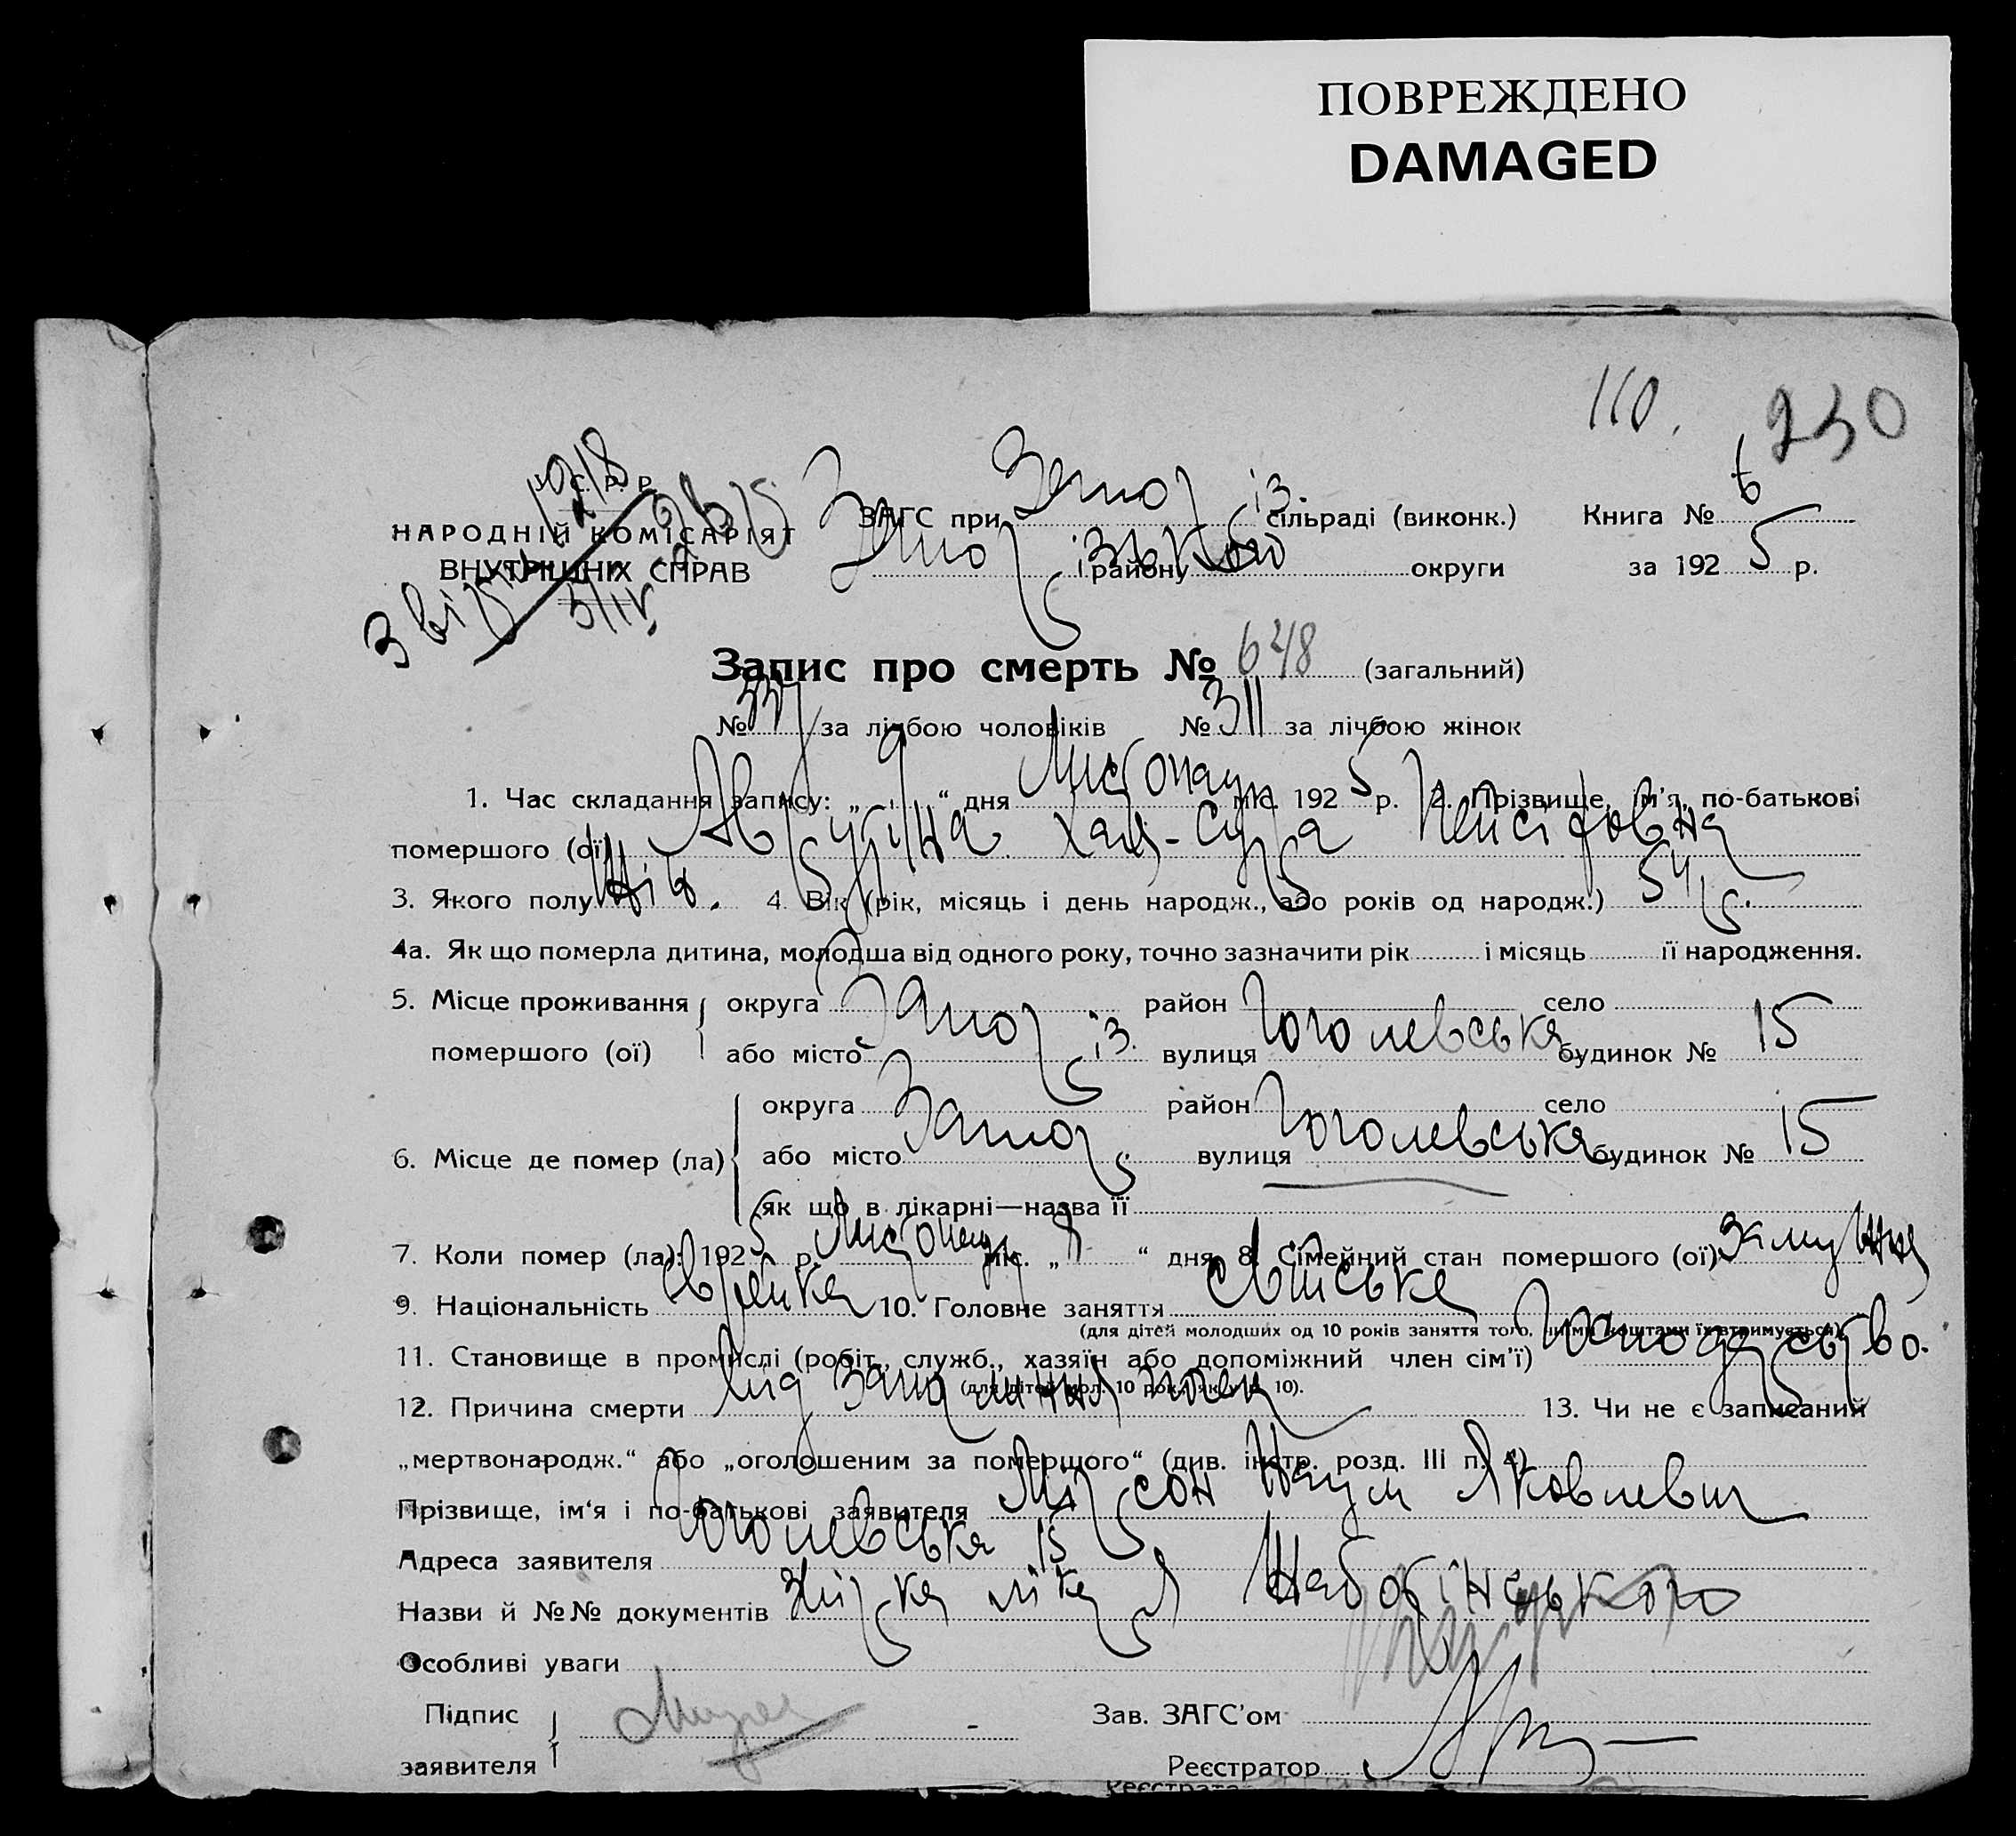 ПОВРЕЖДЕНО
DAMAGED
110. 230
У. С. Р. Р.
НАРОДНІЙ КОМІСАРІЯТ
ВНУТРІШНІХ СПРАВ
ЗАГС при Запоріз. сільраді (виконк.) Книга № 6
району округи за 1925 р.
Запис про смерть № 648 (загальний)
№ 337 за лічбою чоловіків № 311 за лічбою жінок
1. Час складання запису: „9“ дня Листопаду міс. 1925 р. 2. Прізвище, ім'я, по-батькові
помершого (ої) Хая-Сура
3. Якого полу жін. 4. Вік (рік, місяць і день народж., або років од народж.) 54 р.
4а. Як що померла дитина, молодша від одного року, точно зазначити рік і місяць її народження.
5. Місце проживання округа район село
помершого (ої) або місто Запоріз. вулиця Гоголевська будинок № 15
округа район село
6. Місце де помер (ла) або місто Запор. вулиця Гоголевська будинок № 15
як що в лікарні—назва її
7. Коли помер (ла): 1925 р. Листопаду міс. „ “ дня 8. Сімейний стан помершого (ої) замужня
9. Національність єврейка 10. Головне заняття свійське
(для дітей молодших од 10 років заняття того, чиїми коштами їх утримується)
11. Становище в промислі (робіт., служб., хазяїн або допоміжний член сім'ї) господарство.
(для дітей мол. 10 рок., як у п. 10).
12. Причина смерти від запалення 13. Чи не є записаний
„мертвонародж.“ або „оголошеним за помершого“ (див. інстр. розд. III п. 4)
Прізвище, ім'я і по-батькові заявителя Наум Яковлевич
Адреса заявителя Гоголевська 15
Назви й №№ документів лікаря
Особливі уваги
Підпис Зав. ЗАГС'ом
заявителя Реєстратор